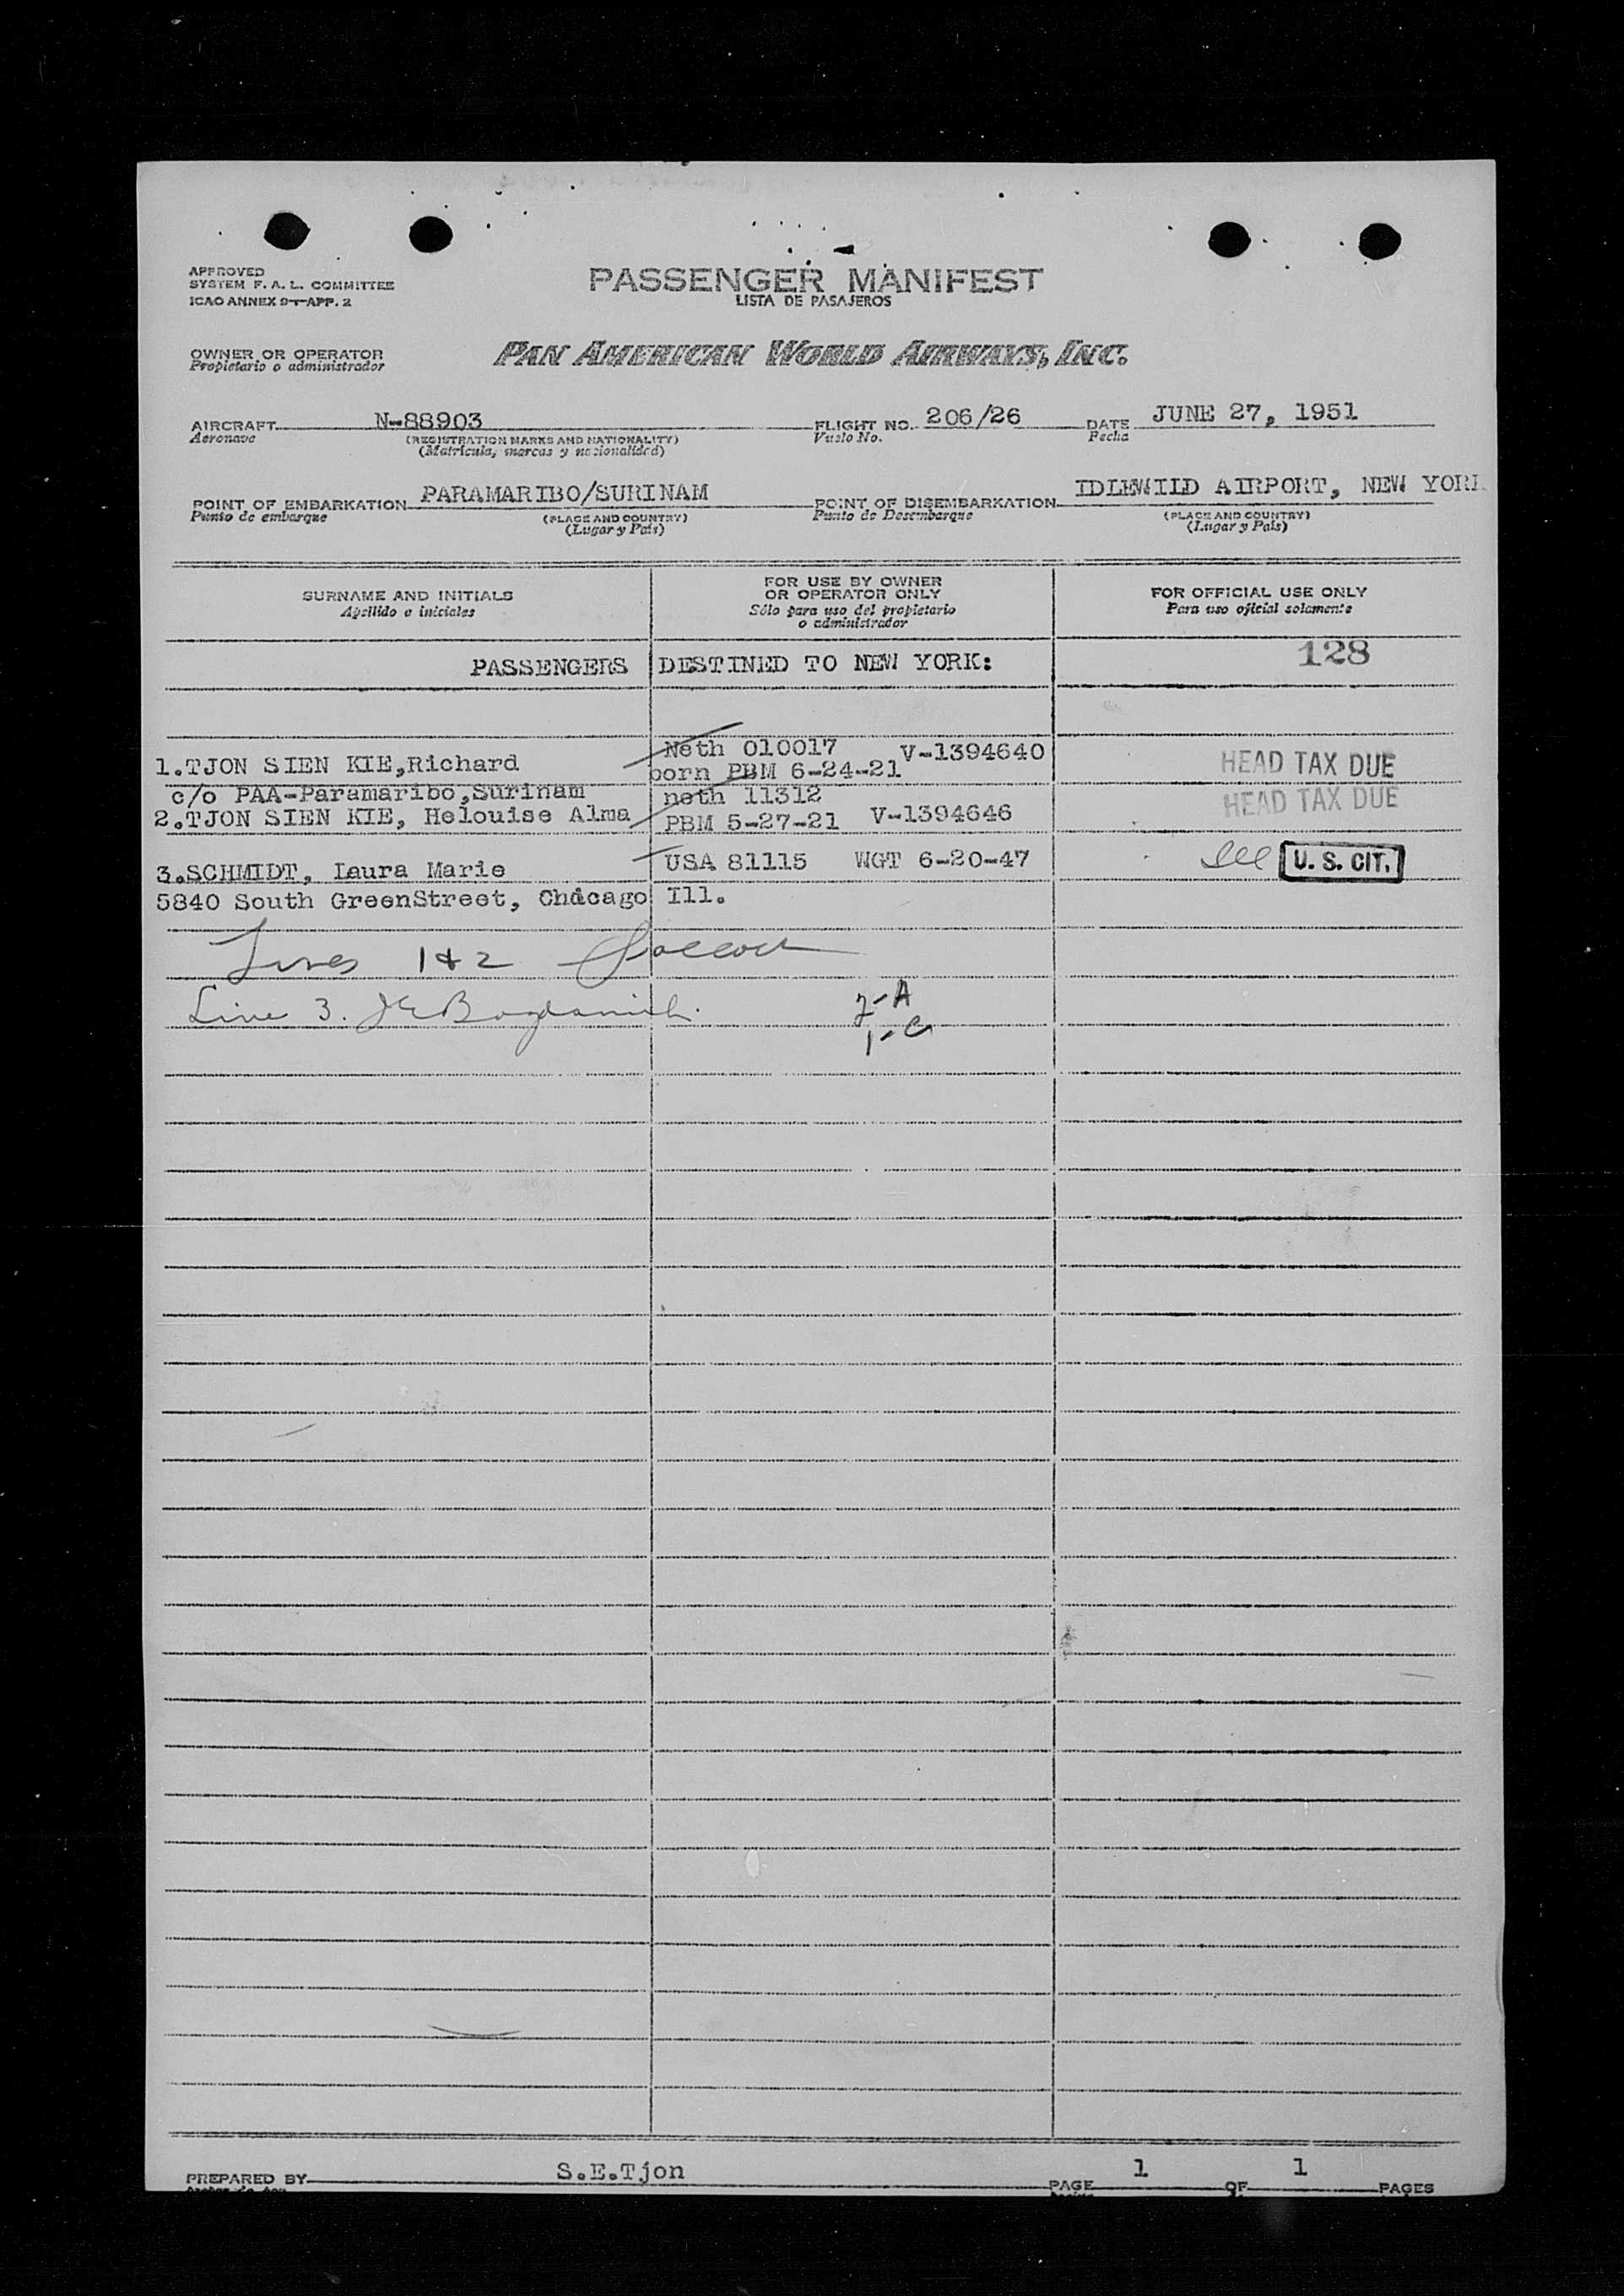 APPROVED
SYSTEM F. A. L. COMMITTEE
ICAO ANNEX 9-T-APP. 2
PASSENGER MANIFEST
LISTA DE PASAJEROS
OWNER OR OPERATOR
Propietario o administrador
PAN AMERICAN WORLD AIRWAYS, INC.
AIRCRAFT N-88903 FLIGHT NO. 206/26 DATE JUNE 27, 1951
Aeronave (REGISTRATION MARKS AND NATIONALITY) Vuelo No. Fecha
(Matrícula, marcas y nacionalidad)
POINT OF EMBARKATION PARAMARIBO/SURINAM POINT OF DISEMBARKATION IDLEWILD AIRPORT, NEW YORK
Punto de embarque (PLACE AND COUNTRY) Punto de Desembarque (PLACE AND COUNTRY)
(Lugar y País) (Lugar y País)
SURNAME AND INITIALS
Apellido o iniciales
FOR USE BY OWNER
OR OPERATOR ONLY
Sólo para uso del propietario
o administrador
FOR OFFICIAL USE ONLY
Para uso oficial solamente
PASSENGERS DESTINED TO NEW YORK: 128
Neth 010017 V-1394640
1.TJON SIEN KIE,Richard born PBM 6-24-21 HEAD TAX DUE
c/o PAA-Paramaribo,Surinam neth 11312 HEAD TAX DUE
2.TJON SIEN KIE, Helouise Alma PBM 5-27-21 V-1394646
3.SCHMIDT, Laura Marie USA 81115 WGT 6-20-47 U. S. CIT.
5840 South GreenStreet, Chicago Ill.
Lines 1 & 2
Line 3. 2-A
1-C
PREPARED BY S.E.Tjon PAGE 1 OF 1 PAGES